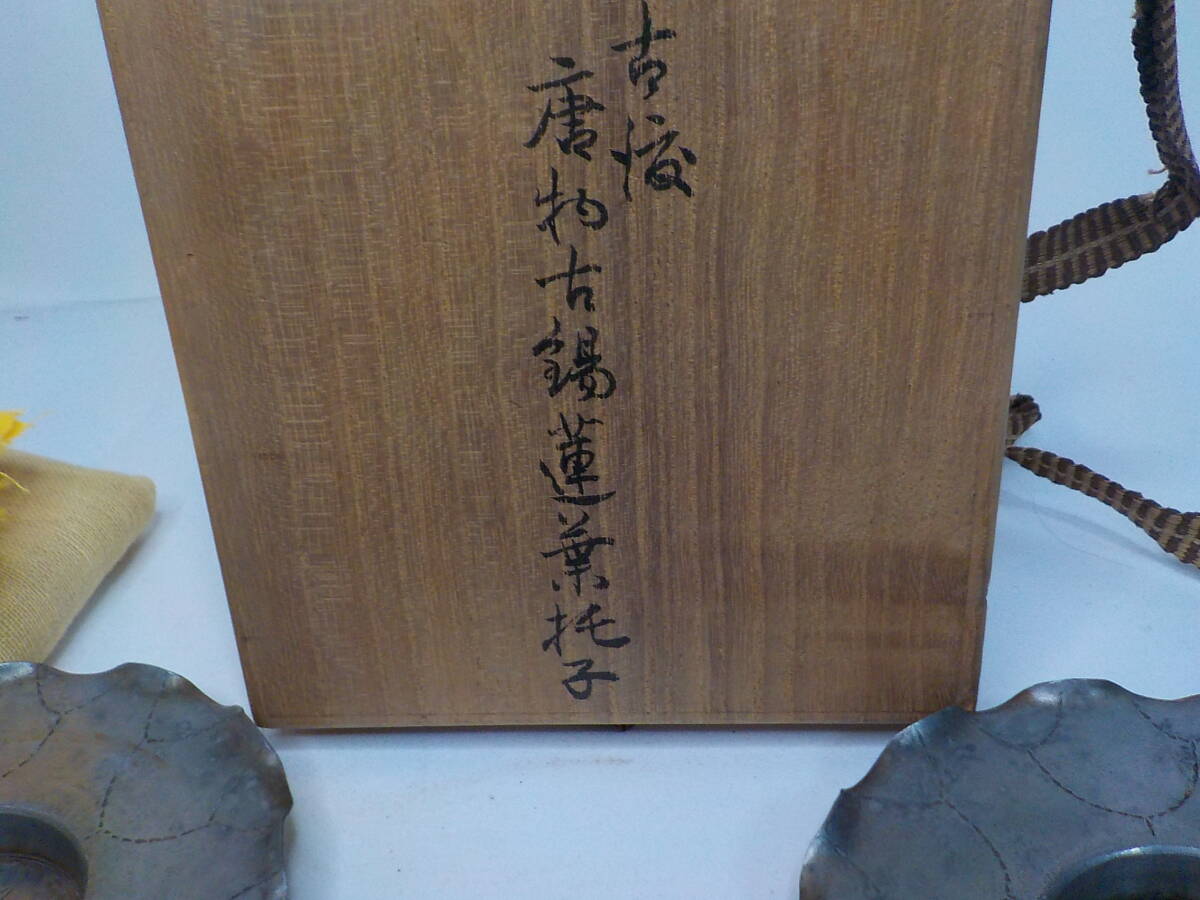 古渡
唐物古錫蓮葉托子